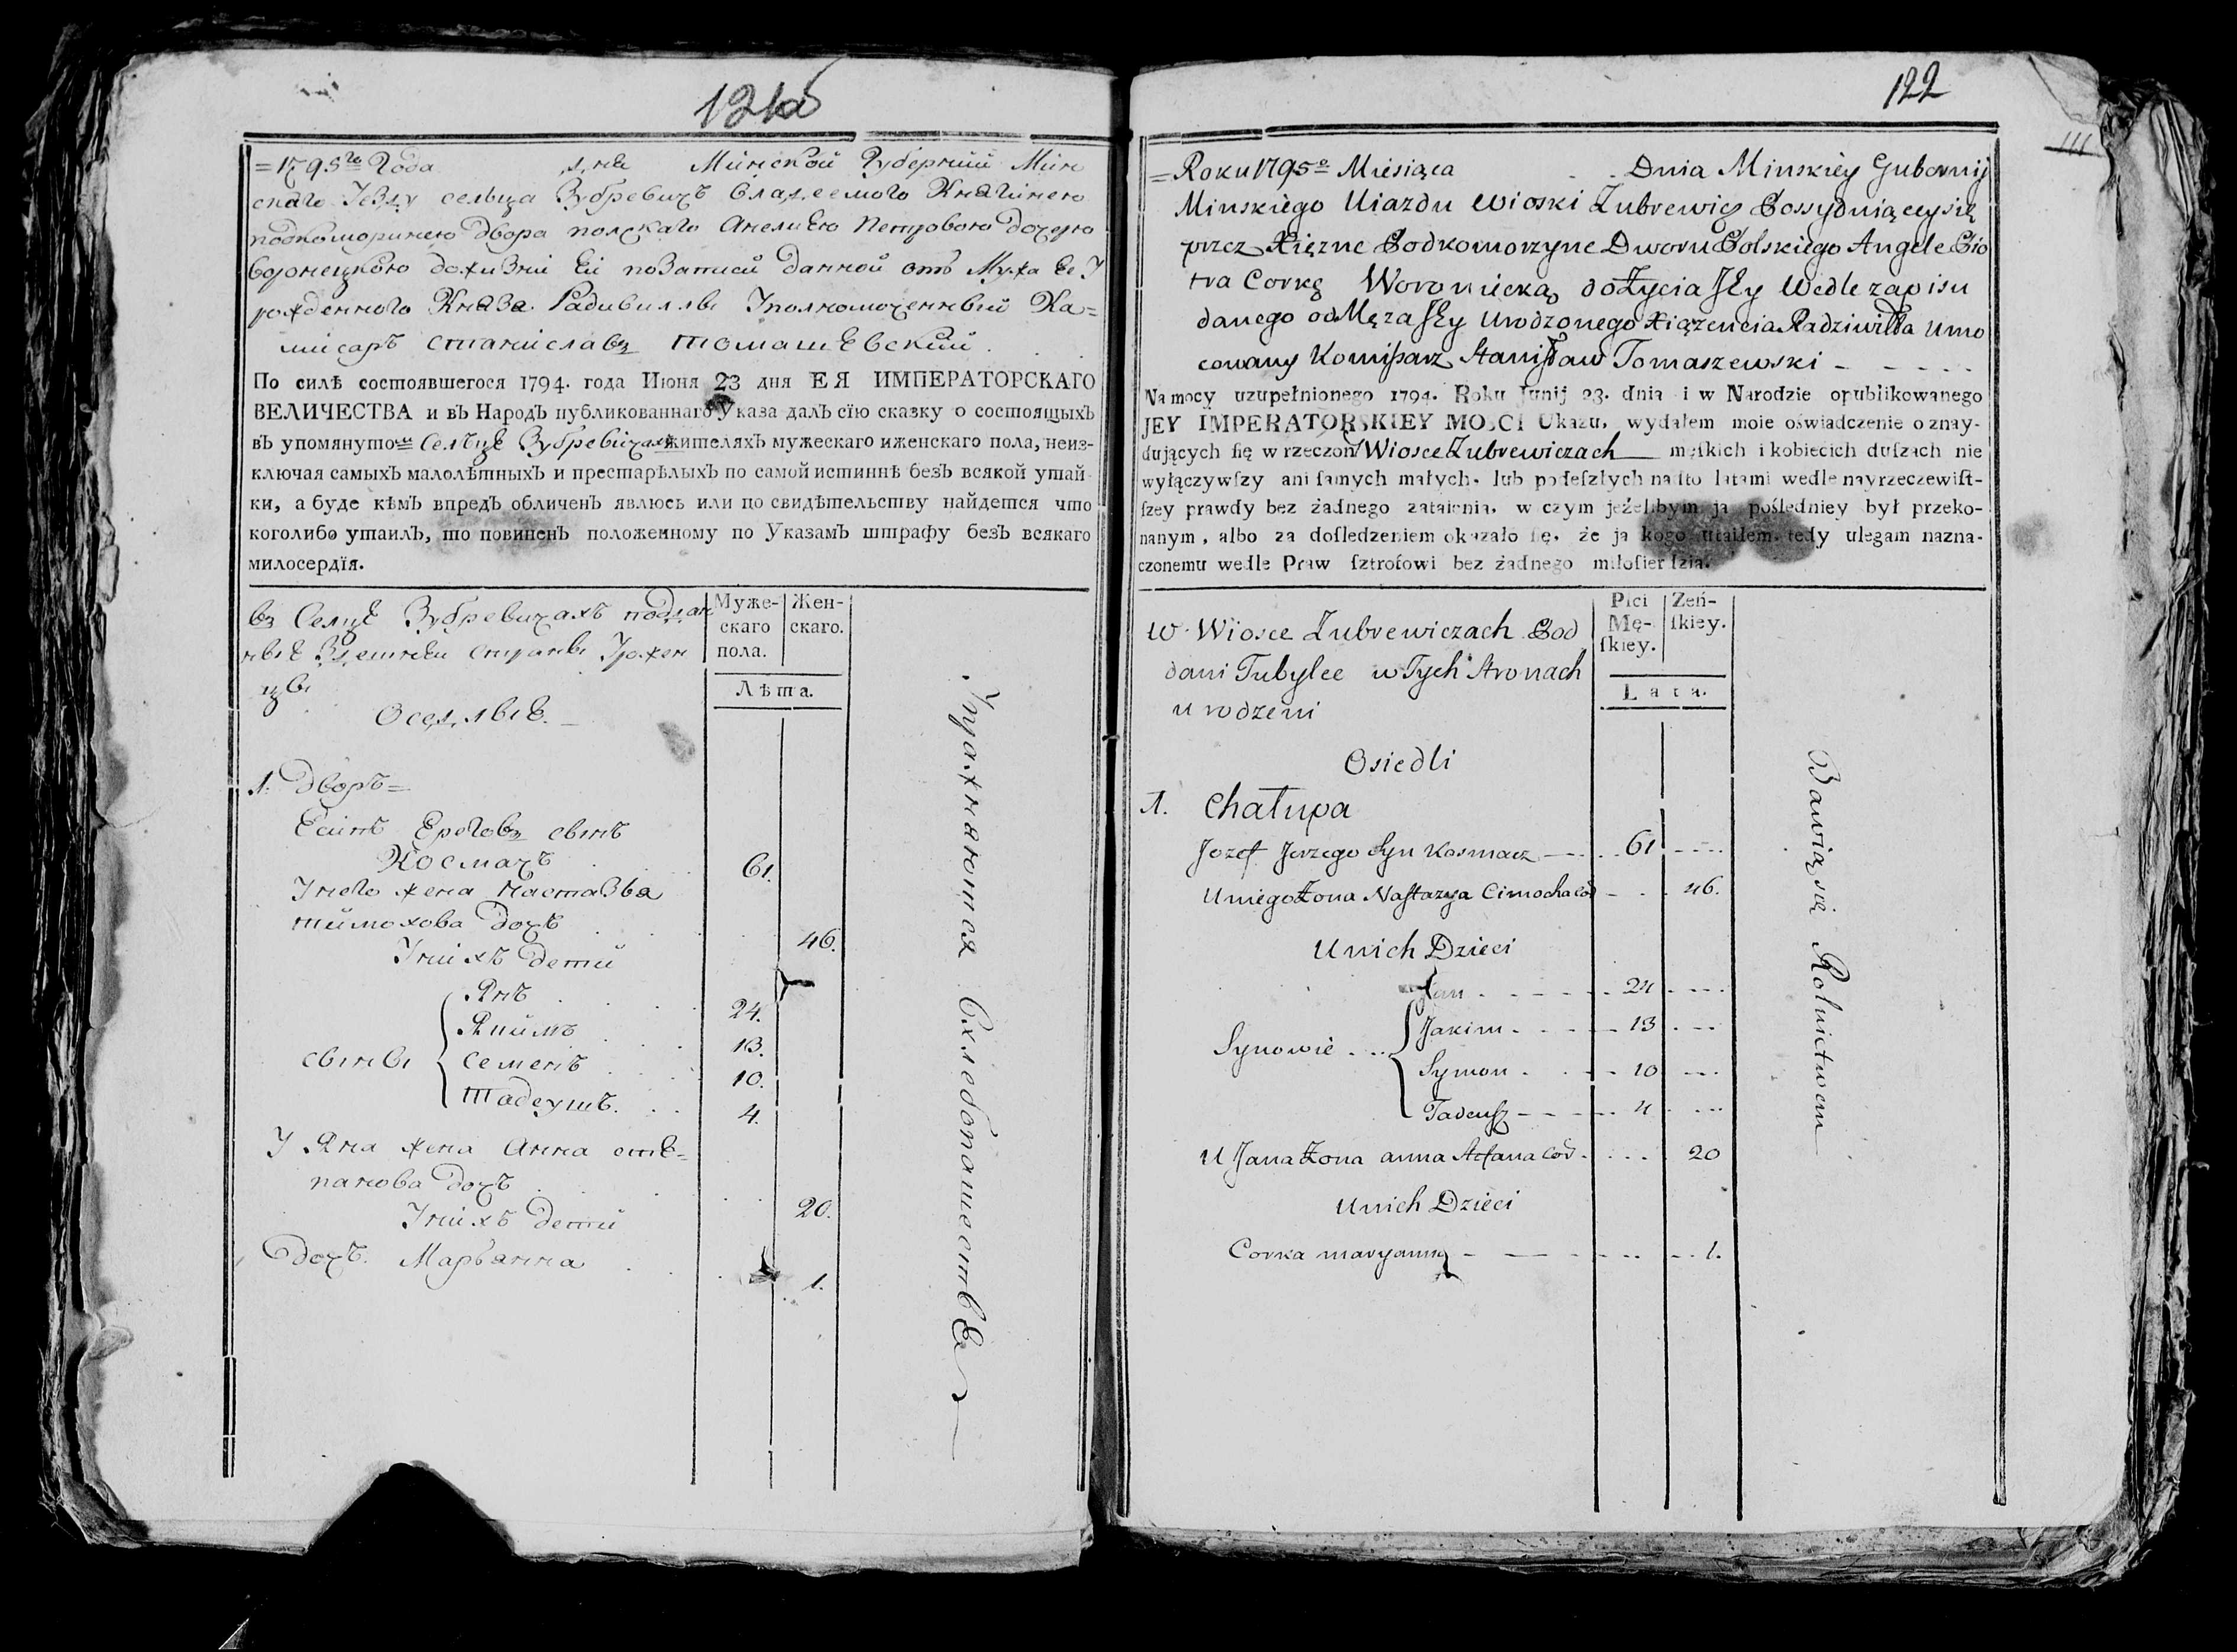 121об
=1795го Года дня Минской Губернии Мин
скаго Уезду сельца Зубревичъ владеемого Княгинею
подкоморинею двора полскаго Анелиею Петровою дочерю
Воронецкою дожизни Ей позаписи данной отъ Мужа Ее У
рожденного Князя Радивиллы Уполномоченный Ка=
мисаръ Станиславъ Томашевский . . .
По силѣ состоявшегося 1794. года Июня 23 дня ЕЯ ИМПЕРАТОРСКАГО
ВЕЛИЧЕСТВА и въ Народъ публикованнаго Указа далъ сїю сказку о состоящыхъ
въ упомянутомъ Селцѣ Зубревичахъ жителяхъ мужескаго иженскаго пола, неиз-
ключая самыхъ малолѣтныхъ и престарѣлыхъ по самой истиннѣ безъ всякой утай-
ки, а буде кѣмъ впредь обличенъ явлюсь или по свидѣтельству найдется что
коголибо утаилъ, то повиненъ положенному по Указамъ штрафу безъ всякаго
милосердїя.
въ Селцѣ Зубревичахъ поддан
ные Здешнеи страны Урожен
цы
Оседлые.
Муже-
скаго
пола.
Жен-
скаго.
Лѣта.
1. Дворъ=
Есипъ Ероговъ сынъ
Космачъ . . . 61.
Унего жена Настазья
тимохова дочь . . . 46.
Унихъ дети
Янъ . . . 24.
Якимъ . . . 13.
сыны { семенъ . . . 10.
тадеушъ. . . 4.
У Яна жена Анна сте=
панова дочь . . . 20.
Унихъ дети
дочь. Марьанна . . . 1.
Упражнаются Вхлебопашестве
122
111
=Roku 1795o Miesiąca . . Dnia Minskiey Gubernij
Minskiego Uiazdu Wioski Zubrewicz Possyduiąceysię
przez Xięzne Podkomorzyne Dworu Polskiego Angele Pio
tra Corkę Woroniecką dożycia Jey Wedle zapisu
danego od Męża Jey Urodzonego Xiążencia Radziwiłła Umo
cowany Komissarz Stanisław Tomaszewski - - - - -
Na mocy uzupełnionego 1794. Roku Junij 23. dnia i w Narodzie opublikowanego
JEY IMPERATORSKIEY MOSCI Ukazu, wydałem moie oświadczenie o znay-
duiących ſię w rzeczoney Wiosce Zubrewiczach męſkich i kobiecich duſzach nie
wyłączywſzy ani ſamych małych, lub podeſzłych nadto latami wedle nayrzeczewiſt-
ſzey prawdy bez żadnego zataienia, w czym jeżelibym ja pośledniey był przeko-
nanym, albo za doſledzeniem okazało ſię, że ja kogo utaiłem, tedy ulegam nazna-
czonemu wedle Praw ſztroſowi bez żadnego miłoſierdzia.
w Wiosce Zubrewiczach Pod
dani Tubylce w Tych Stronach
urodzeni
Płci
Mę-
ſkiey.
Zeń-
ſkiey.
Lata.
Osiedli
1. Chałupa
Jozef Jerzego Syn Kosmacz — . . 61 - - - -
Uniego Żona Nastazya Cimocha Cor - . . 46.
Unich Dzieci
Jan . - - - - . 24 . - - -
Synowie . .. { Jakim . - - - . 13 . - - -
Symon . . - - 10 - - -
Tadeusz - - - - . 4 . - - -
U Jana Żona anna Stefana Cor . . . . . 20
Unich Dzieci
Corka maryanna - — - - . . . . 1.
Bawią się Rolnictwem